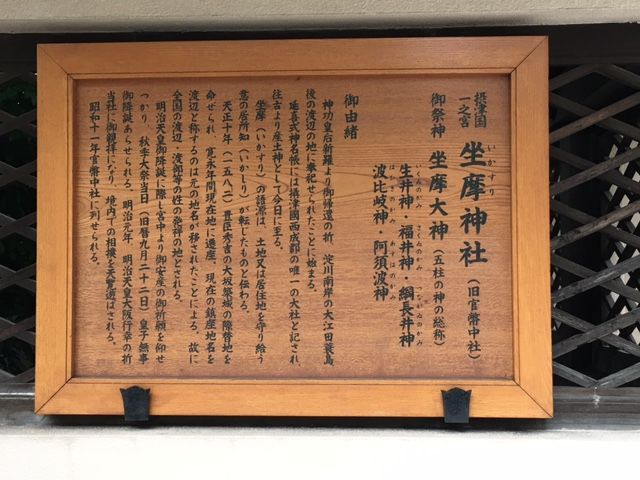 摂津国
一之宮
いかすり
坐摩神社
（旧官幣中社）
御祭神 坐摩大神（五柱の神の総称）
いくゐのかみ さくゐのかみ つながゐのかみ
生井神・福井神・綱長井神
はひきのかみ あすはのかみ
波比岐神・阿須波神
御由緒
神功皇后新羅より御帰還の折、淀川南岸の大江田蓑島
後の渡辺の地に奉祀せられたことに始まる。
延喜式神名帳には摂津國西成郡の唯一の大社と記され、
往古より産土神として今日に至る。
坐摩（いかすり）の語源は、土地又は居住地を守り給う
意の居所知（いかしり）が転じたものと伝わる。
天正十年（一五八二）豊臣秀吉の大坂築城の際替地を
命ぜられ、寛永年間現在地に遷座。現在の鎮座地名を
渡辺と称するのは元の地名が移されたことによる。故に
全国の渡辺、渡部等の姓の発祥の地とされる。
明治天皇御降誕に際し宮中より御安産の御祈願を仰せ
つかり、秋季大祭当日（旧暦九月二十二日）皇子無事
御降誕あらせられる。明治元年、明治天皇大阪行幸の折
当社に御親拝になり、境内にて相撲を天覧遊ばされる。
昭和十一年官幣中社に列せられる。